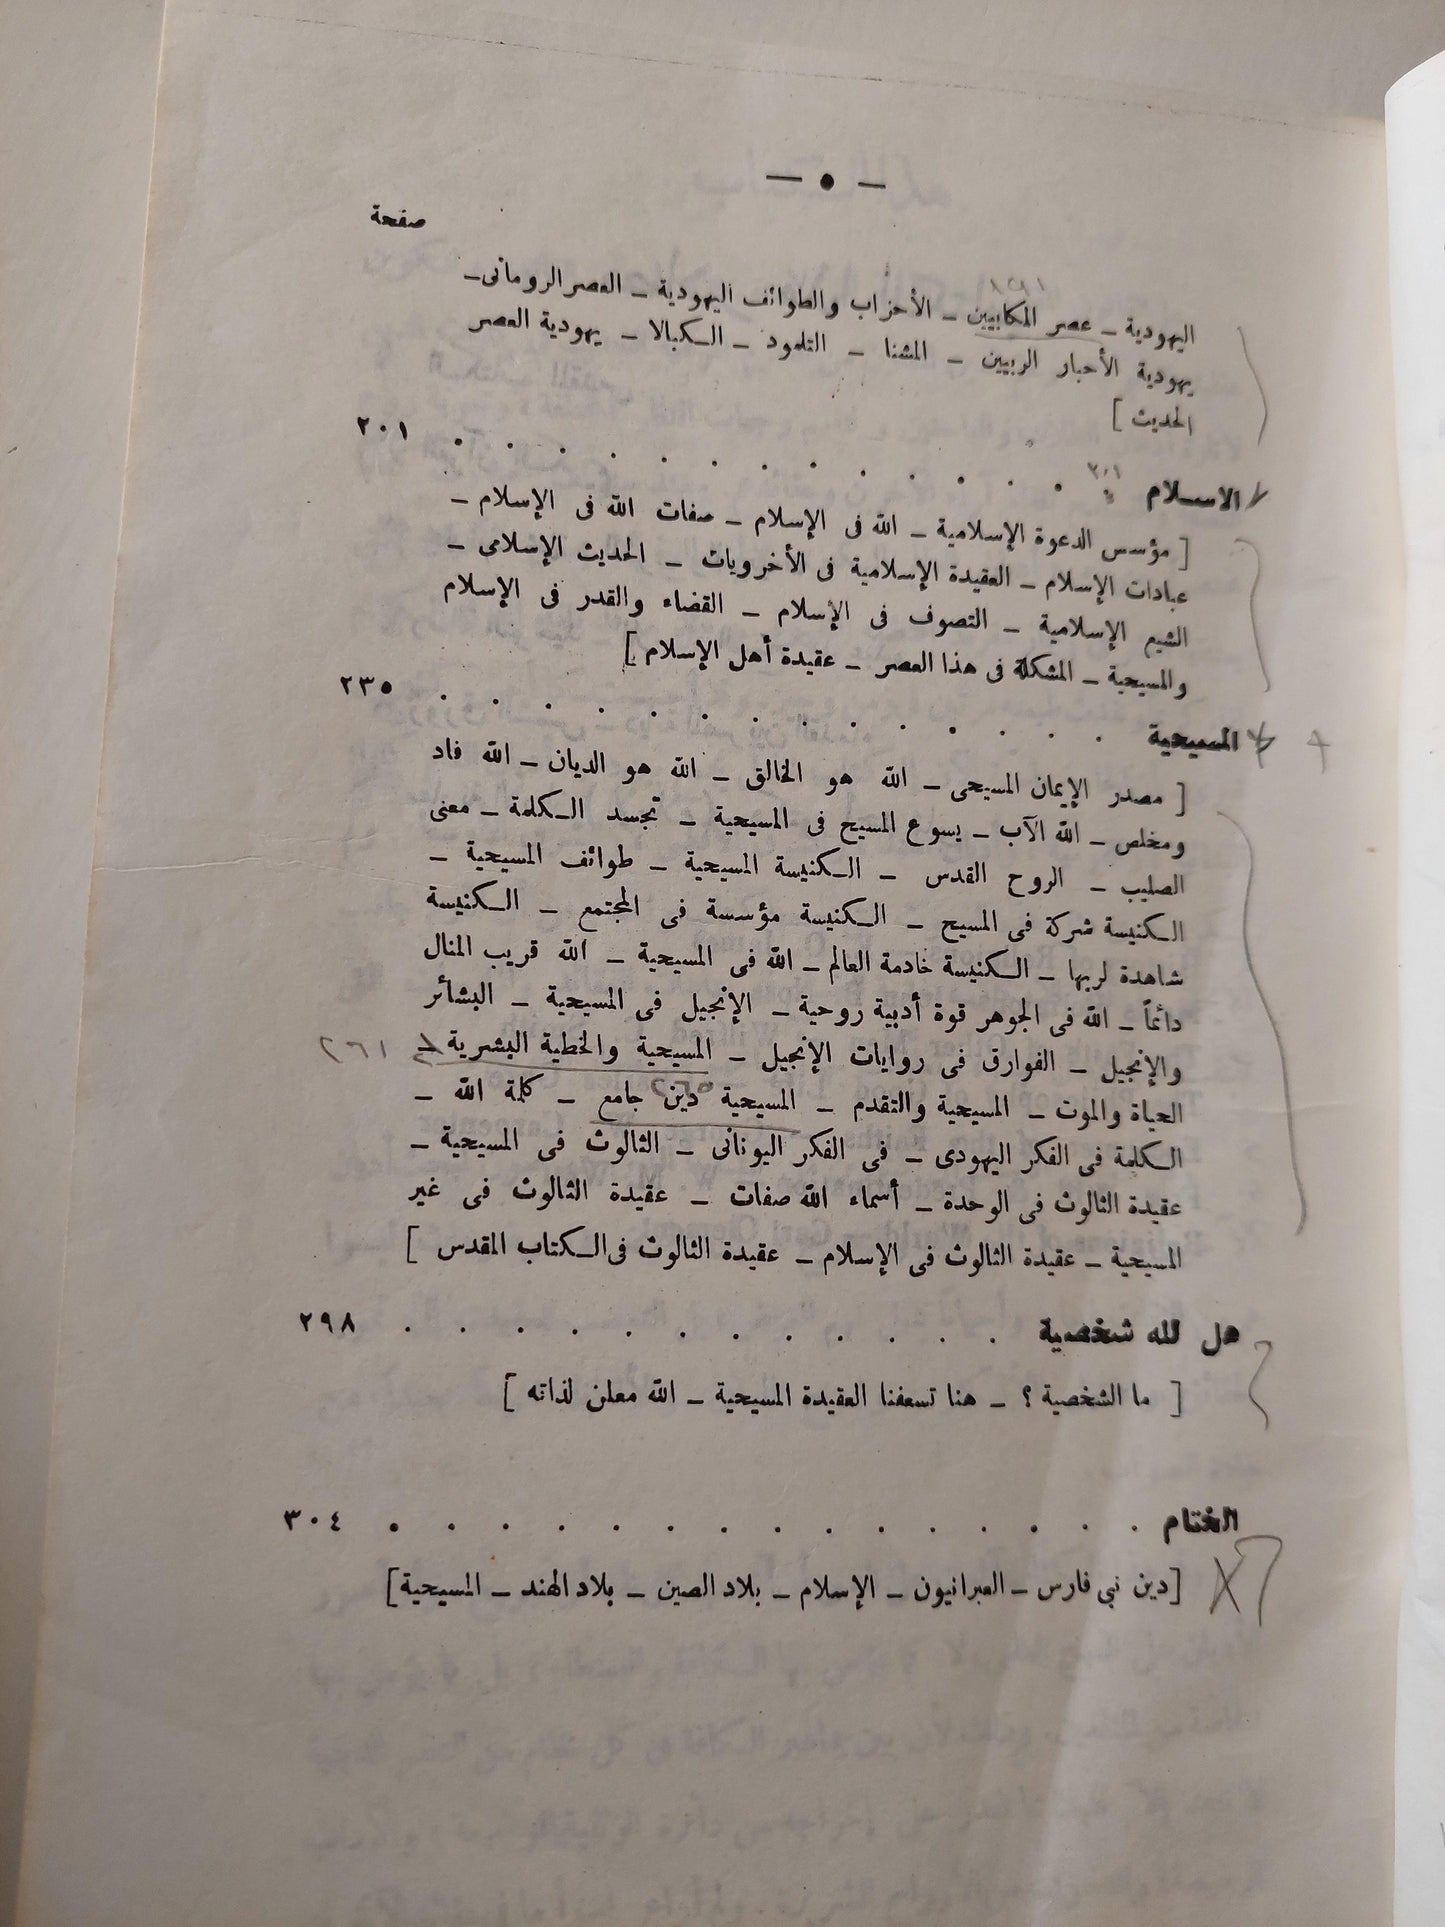 — ٥ —
صفحة
اليهودية — عصر المكابيين — الأحزاب والطوائف اليهودية — العصر الرومانى —
يهودية الأحبار الربيين — المشنا — التلمود — الكبالا — يهودية العصر
الحديث ]
الاسلام . . . . . . . . . . . . . . ٢٠١
٢٠١
[ مؤسس الدعوة الإسلامية — الله فى الإسلام — صفات الله فى الإسلام —
عبادات الإسلام — العقيدة الإسلامية فى الأخرويات — الحديث الإسلامى —
الشيم الإسلامية — التصوف فى الإسلام — القضاء والقدر فى الإسلام
والمسيحية — المشكلة فى هذا العصر — عقيدة أهل الإسلام ]
المسيحية . . . . . . . . . . . . . . ٢٣٥
[ مصدر الإيمان المسيحى — الله هو الخالق — الله هو الديان — الله فاد
ومخلص — الله الآب — يسوع المسيح فى المسيحية — تجسد الكلمة — معنى
الصليب — الروح القدس — الكنيسة المسيحية — طوائف المسيحية —
الكنيسة شركة فى المسيح — الكنيسة مؤسسة فى المجتمع — الكنيسة
شاهدة لربها — الكنيسة خادمة العالم — الله فى المسيحية — الله قريب المنال
دائماً — الله فى الجوهر قوة أدبية روحية — الإنجيل فى المسيحية — البشائر
والإنجيل — الفوارق فى روايات الإنجيل — المسيحية والخطية البشرية — ٢٦١
الحياة والموت — المسيحية والتقدم — المسيحية دين جامع — كلمة الله —
الكلمة فى الفكر اليهودى — فى الفكر اليونانى — الثالوث فى المسيحية —
عقيدة الثالوث فى الوحدة — أسماء الله صفات — عقيدة الثالوث فى غير
المسيحية — عقيدة الثالوث فى الإسلام — عقيدة الثالوث فى الكتاب المقدس ]
هل لله شخصية . . . . . . . . . . . . ٢٩٨
[ ما الشخصية ؟ — هنا تسعفنا العقيدة المسيحية — الله معلن لذاته ]
الختام . . . . . . . . . . . . . . . ٣٠٤
[دين نبى فارس — العبرانيون — الإسلام — بلاد الصين — بلاد الهند — المسيحية]